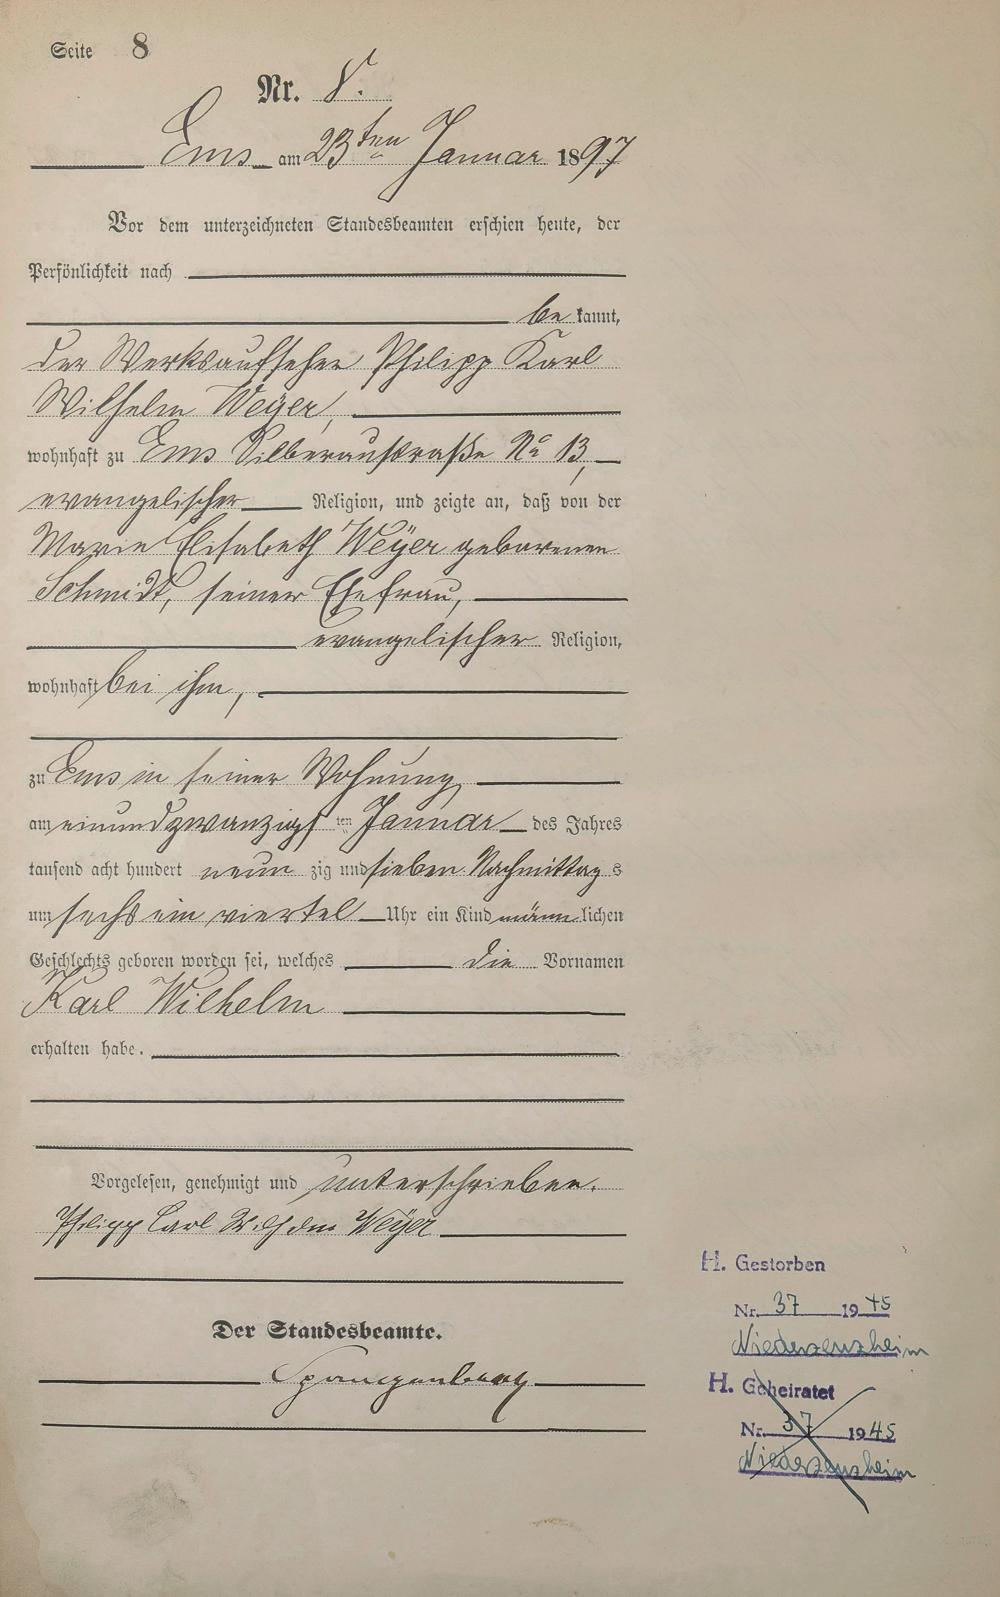 Seite 8
Nr. 8.
Ems am 23ten Januar 1897
Vor dem unterzeichneten Standesbeamten erschien heute, der
Persönlichkeit nach
bekannt,
der Werksaufseher Philipp Karl
Wilhelm Weÿer,
wohnhaft zu Ems Silberaustraße No 13,
evangelischer Religion, und zeigte an, daß von der
Marie Elisabeth Weÿer geborenen
Schmidt, seiner Ehefrau,
evangelischer Religion,
wohnhaft bei ihm,
zu Ems in seiner Wohnung,
am einundzwanzigsten Januar des Jahres
tausend acht hundert neunzig und sieben Nachmittags
um sechs ein viertel Uhr ein Kind männlichen
Geschlechts geboren worden sei, welches die Vornamen
Karl Wilhelm
erhalten habe.
Vorgelesen, genehmigt und unterschrieben.
Philipp Carl Wilhelm Weÿer
Der Standesbeamte.
Spangenberg
H. Gestorben
Nr. 37 1945
Niederzeuzheim
H. Geheiratet
Nr. 37 1945
Niederzeuzheim